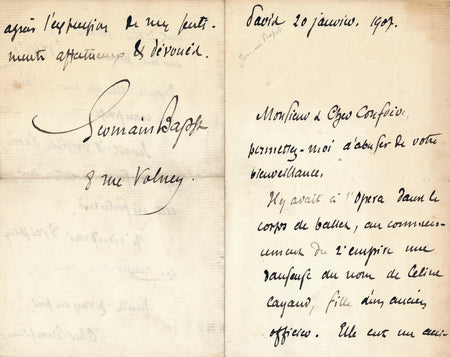 Paris 20 janvier. 1907.
Monsieur & Cher Confrère,
permettez-moi d'abuser de votre
bienveillance.
Il y avait à l'Opera dans le
corps de ballet, au commen-
cement du 2e empire une
danseuse du nom de Celine
Cayaud, fille d'un ancien
officier. Elle eut un
agréer l'expression de mes senti-
ments affectueux & dévoués.
Germain Bapst
8 rue Volney.